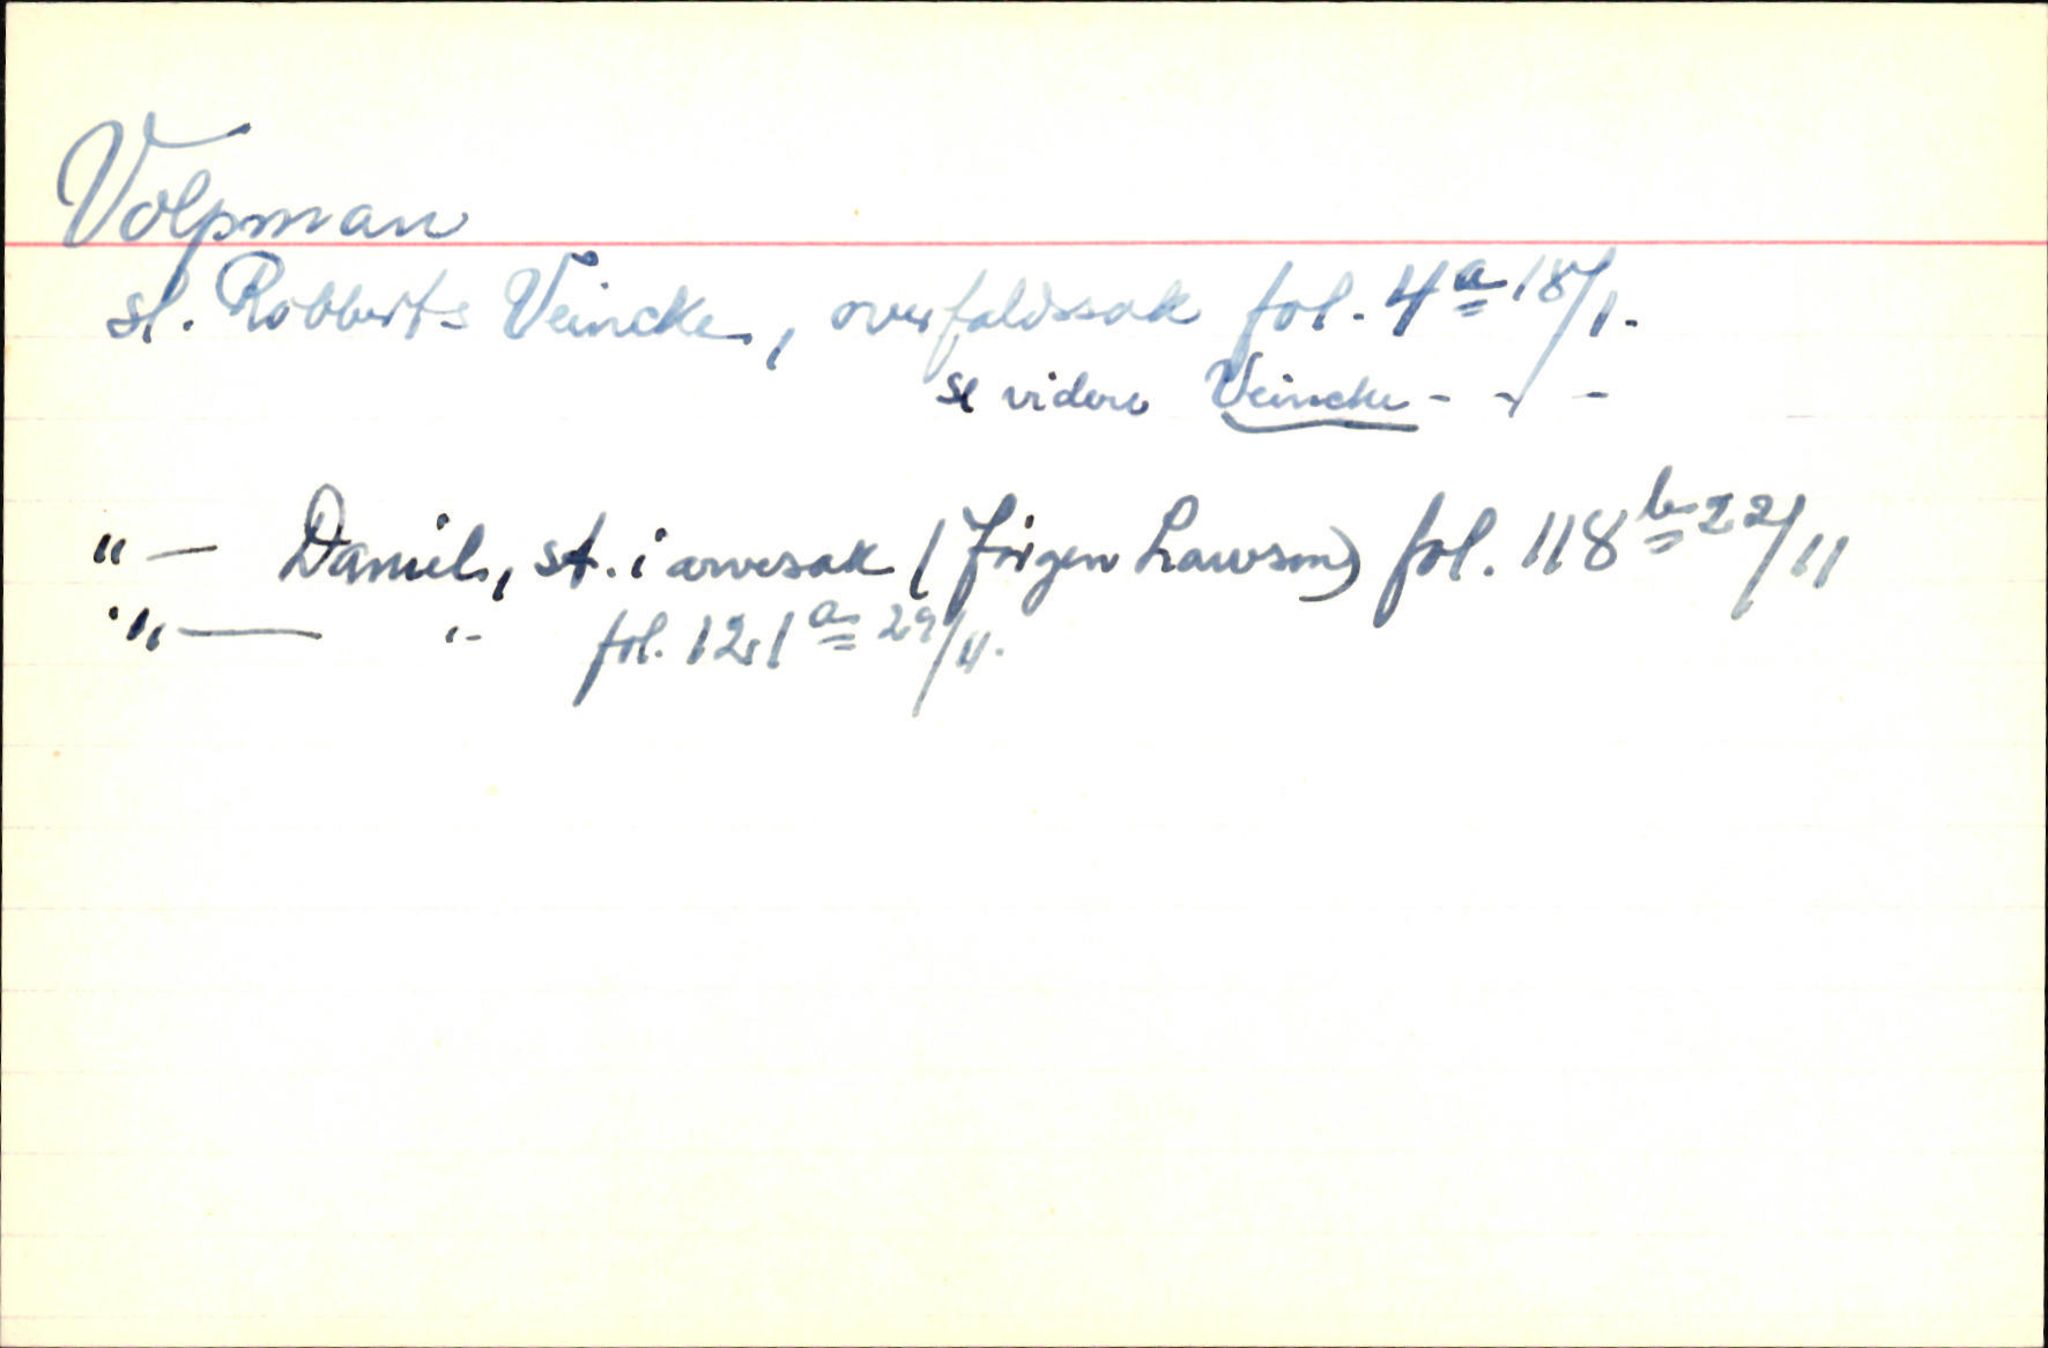 Volpman
sl. Robberts Veincke, overfaldssak fol. 4a 18/1.
se videre Veincke - - -
" — Daniel, st. i arvesak (Jörgen Lawson) fol. 118b 22/11
" — " fol. 121a 29/11.